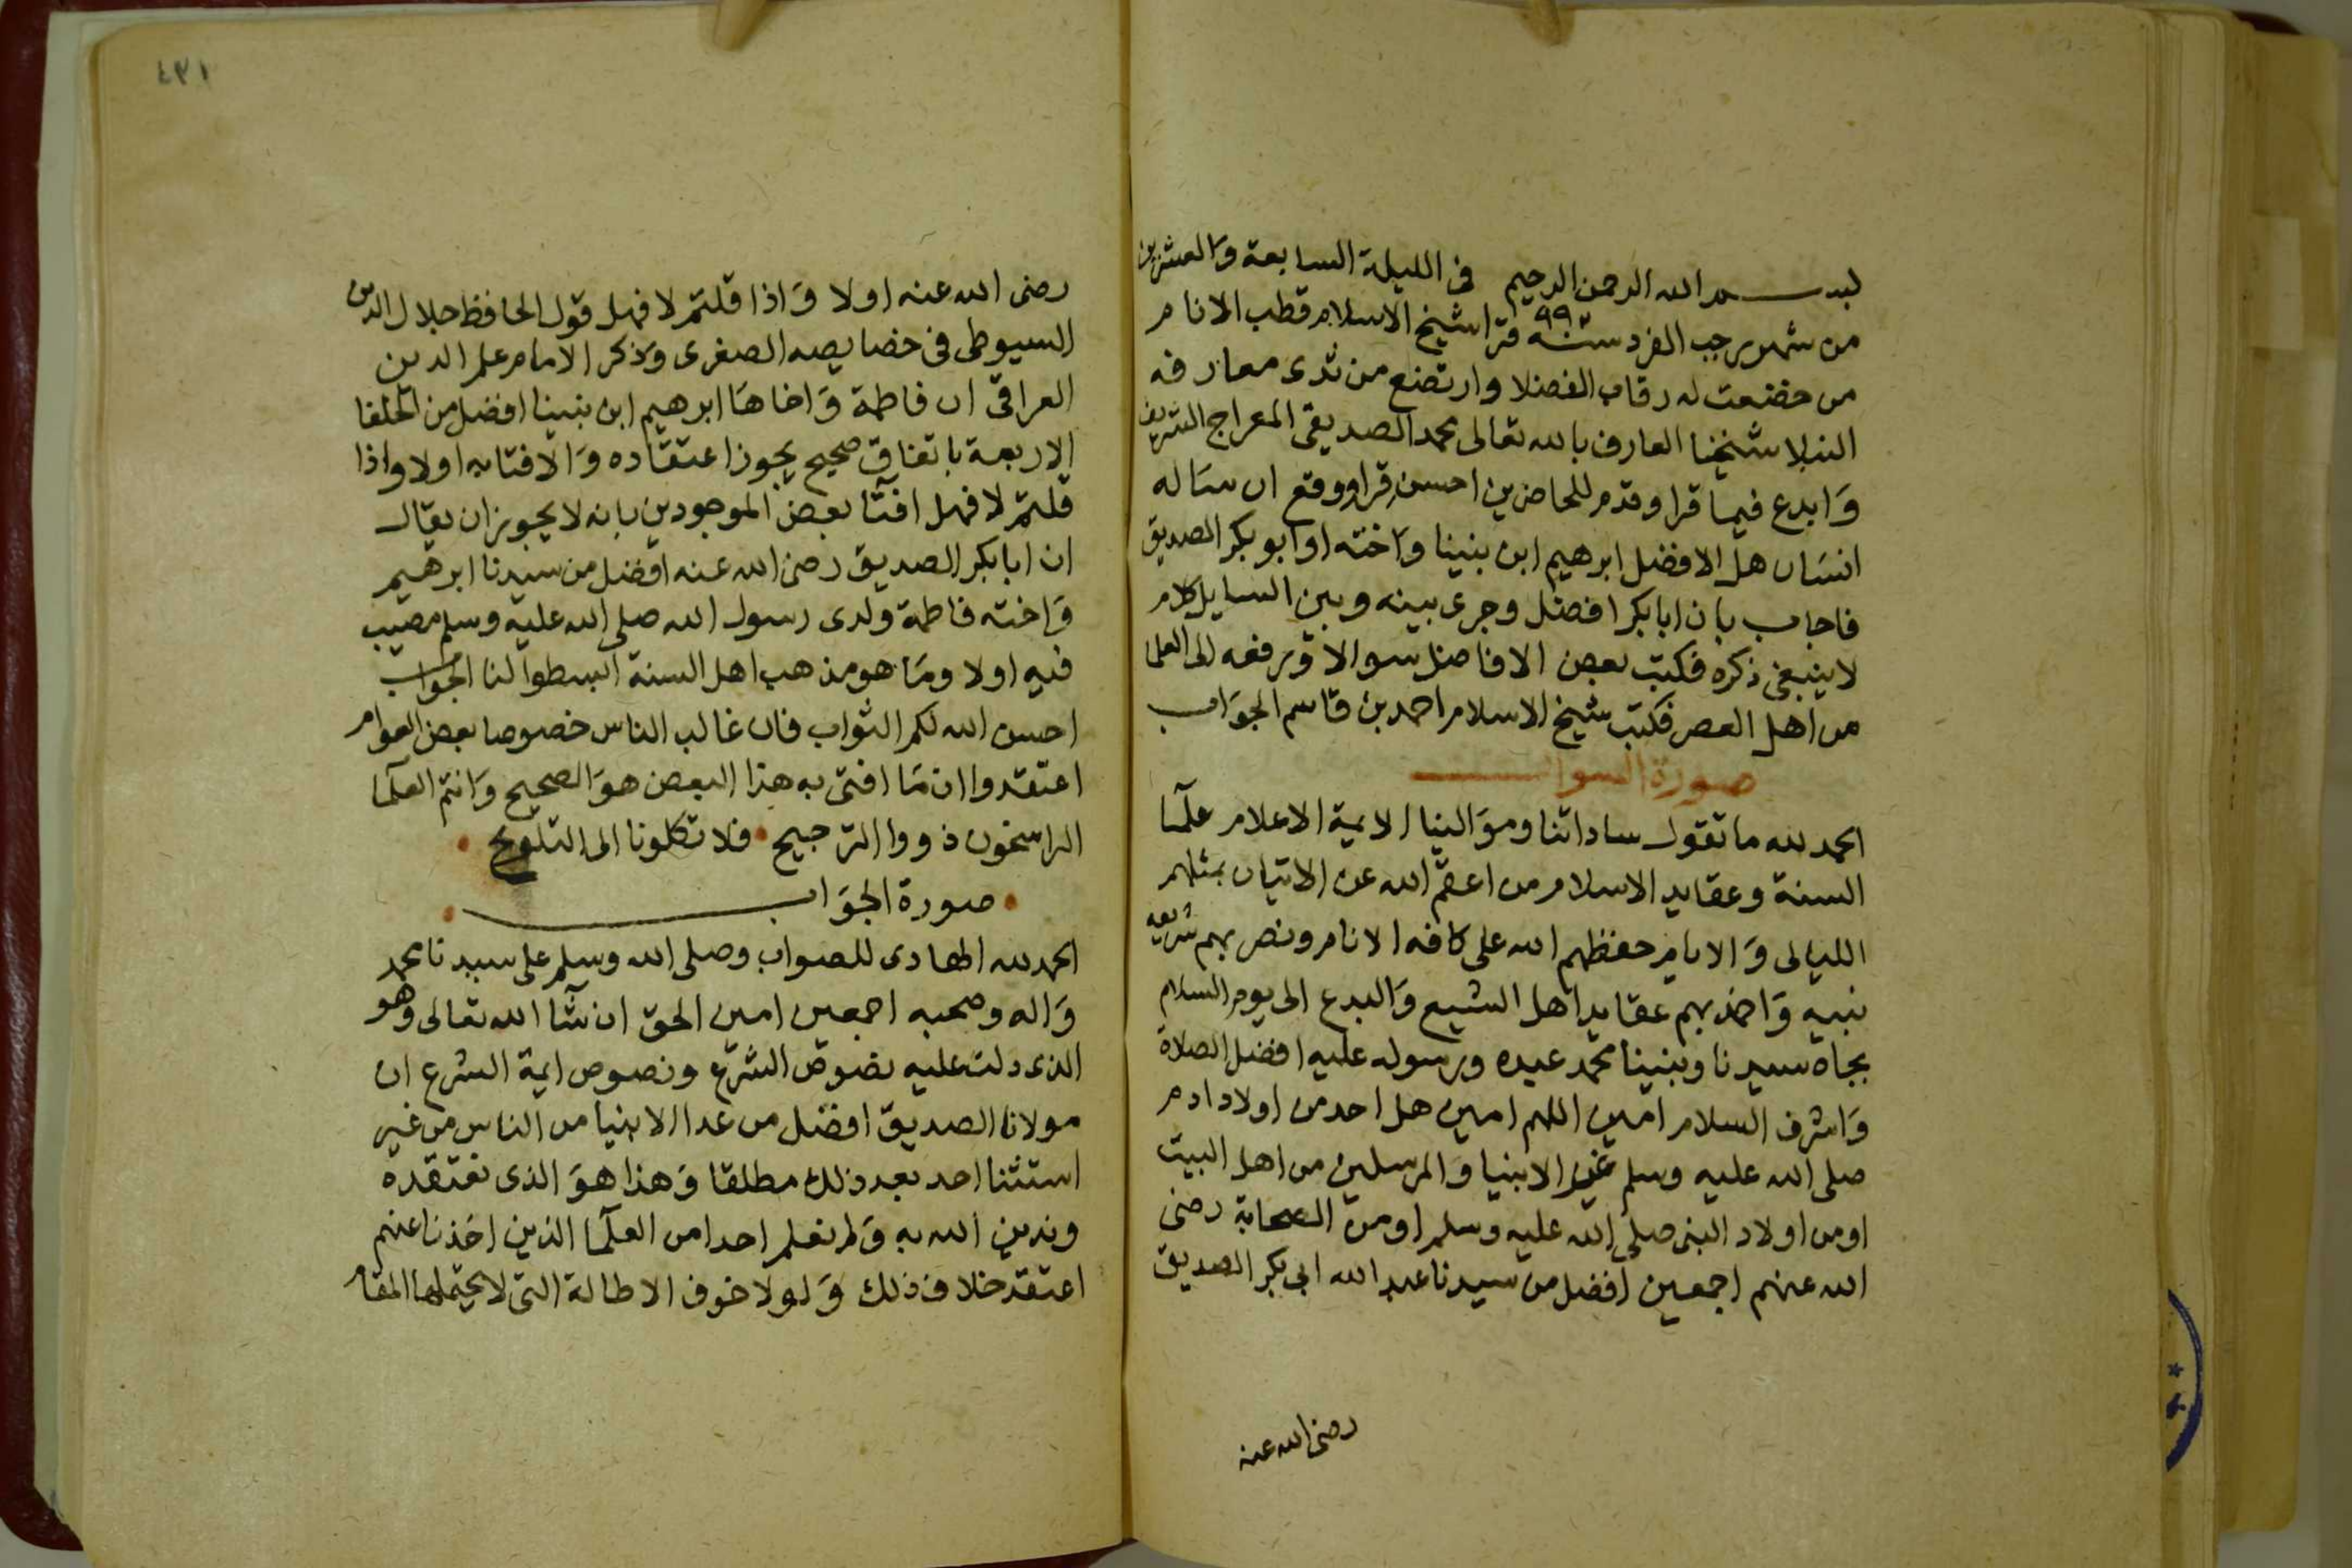 بسم الله الرحمن الرحيم في الليلة السابعة والعشرين
من شهر رجب الفرد سنة ٩٩٢ قرا شيخ الاسلام قطب الانام
من خضعت له رقاب الفضلا وارتضع من ثدى معارفه
النبلا شيخنا العارف بالله تعالى محمد الصديقى المعراج الشريف
وابدع فيما قرا وقدم للحاضرين احسن قرا ووقع ان ساله
انسان هل الافضل ابرهيم ابن نبينا واخته او ابو بكر الصديق
فاجاب بان ابا بكر افضل وجرى بينه وبين السايل كلام
لا ينبغى ذكره فكتب بعض الافاضل سوالا ورفعه الى العلما
من اهل العصر فكتب شيخ الاسلام احمد بن قاسم الجواب
صورة السوال
الحمد لله ما تقول ساداتنا وموالينا الايمة الاعلام علما
السنة وعقايد الاسلام من اعقم الله عن الاتيان بمثلهم
الليالى والايام حفظهم الله على كافه الانام ونصر بهم شريعه
نبيه واخمد بهم عقايد اهل الشيع والبدع الى يوم السلام
بجاه سيدنا ونبينا محمد عبده ورسوله عليه افضل الصلاة
واشرف السلام امين اللهم امين هل احد من اولاد ادم
صلى الله عليه وسلم غير الانبيا والمرسلين من اهل البيت
او من اولاد النبى صلى الله عليه وسلم او من الصحابة رضى
الله عنهم اجمعين افضل من سيدنا عبد الله ابى بكر الصديق
رضى الله عنه
٤٣١
رضى الله عنه اولا واذا قلتم لا فهل قول الحافظ جلال الدين
السيوطى فى خصايصه الصغرى وذكر الامام علم الدين
العراقى ان فاطمة واخاها ابرهيم ابن نبينا افضل من الخلفا
الاربعة باتفاق صحيح يجوز اعتقاده والافتا به اولا واذا
قلتم لا فهل افتا بعض الموجودين بانه لا يجوز ان يقال
ان ابا بكر الصديق رضى الله عنه افضل من سيدنا ابرهيم
واخته فاطمة ولدى رسول الله صلى الله عليه وسلم مصيب
فيه اولا وما هو مذهب اهل السنة ابسطوا لنا الجواب
احسن الله لكم الثواب فان غالب الناس خصوصا بعض العوام
اعتقدوا ان ما افتى به هذا البعض هو الصحيح وانتم العلما
الراسخون ذووا الترجيح فلا تكلونا الى التلويح
صورة الجواب
الحمد لله الهادى للصواب وصلى الله وسلم على سيدنا محمد
واله وصحبه اجمعين امين الحق ان شا الله تعالى وهو
الذى دلت عليه نصوص الشرع ونصوص ايمة الشرع ان
مولانا الصديق افضل من عدا الانبيا من الناس من غير
استثنا احد بعد ذلك مطلقا وهذا هو الذى نعتقده
وندين الله به ولم نعلم احدا من العلما الذين اخذنا عنهم
اعتقد خلاف ذلك ولولا خوف الاطالة التى لا يحتملها المقام